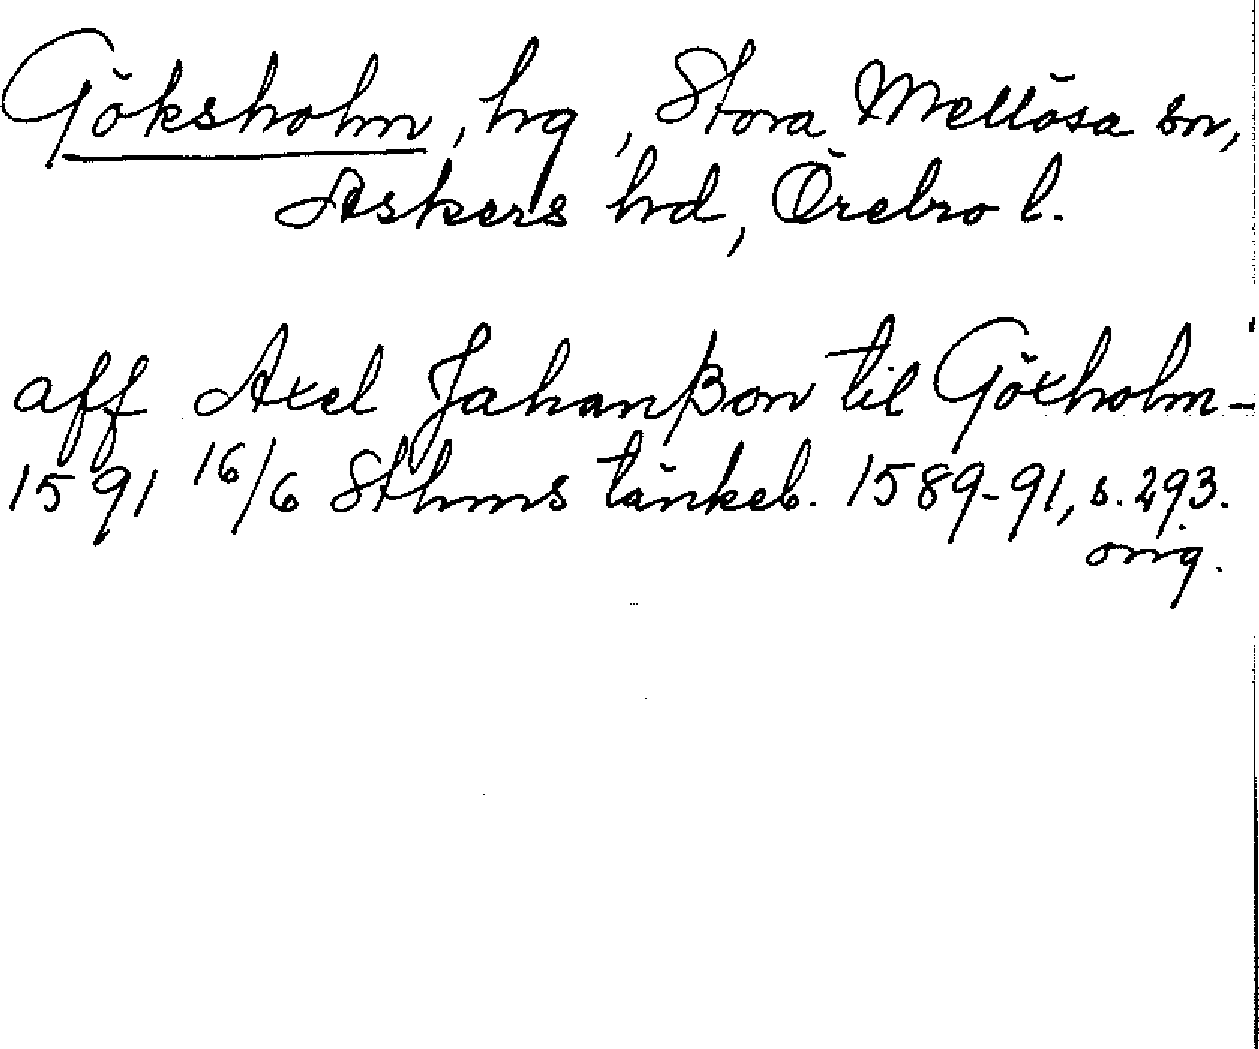 Göksholm, hg, Stora Mellösa sn,
Askers hd, Örebro l.
aff Axel Jahanßon til Göxholm-
1591 16/6 Sthms tänkeb. 1589-91, s. 293.
orig.